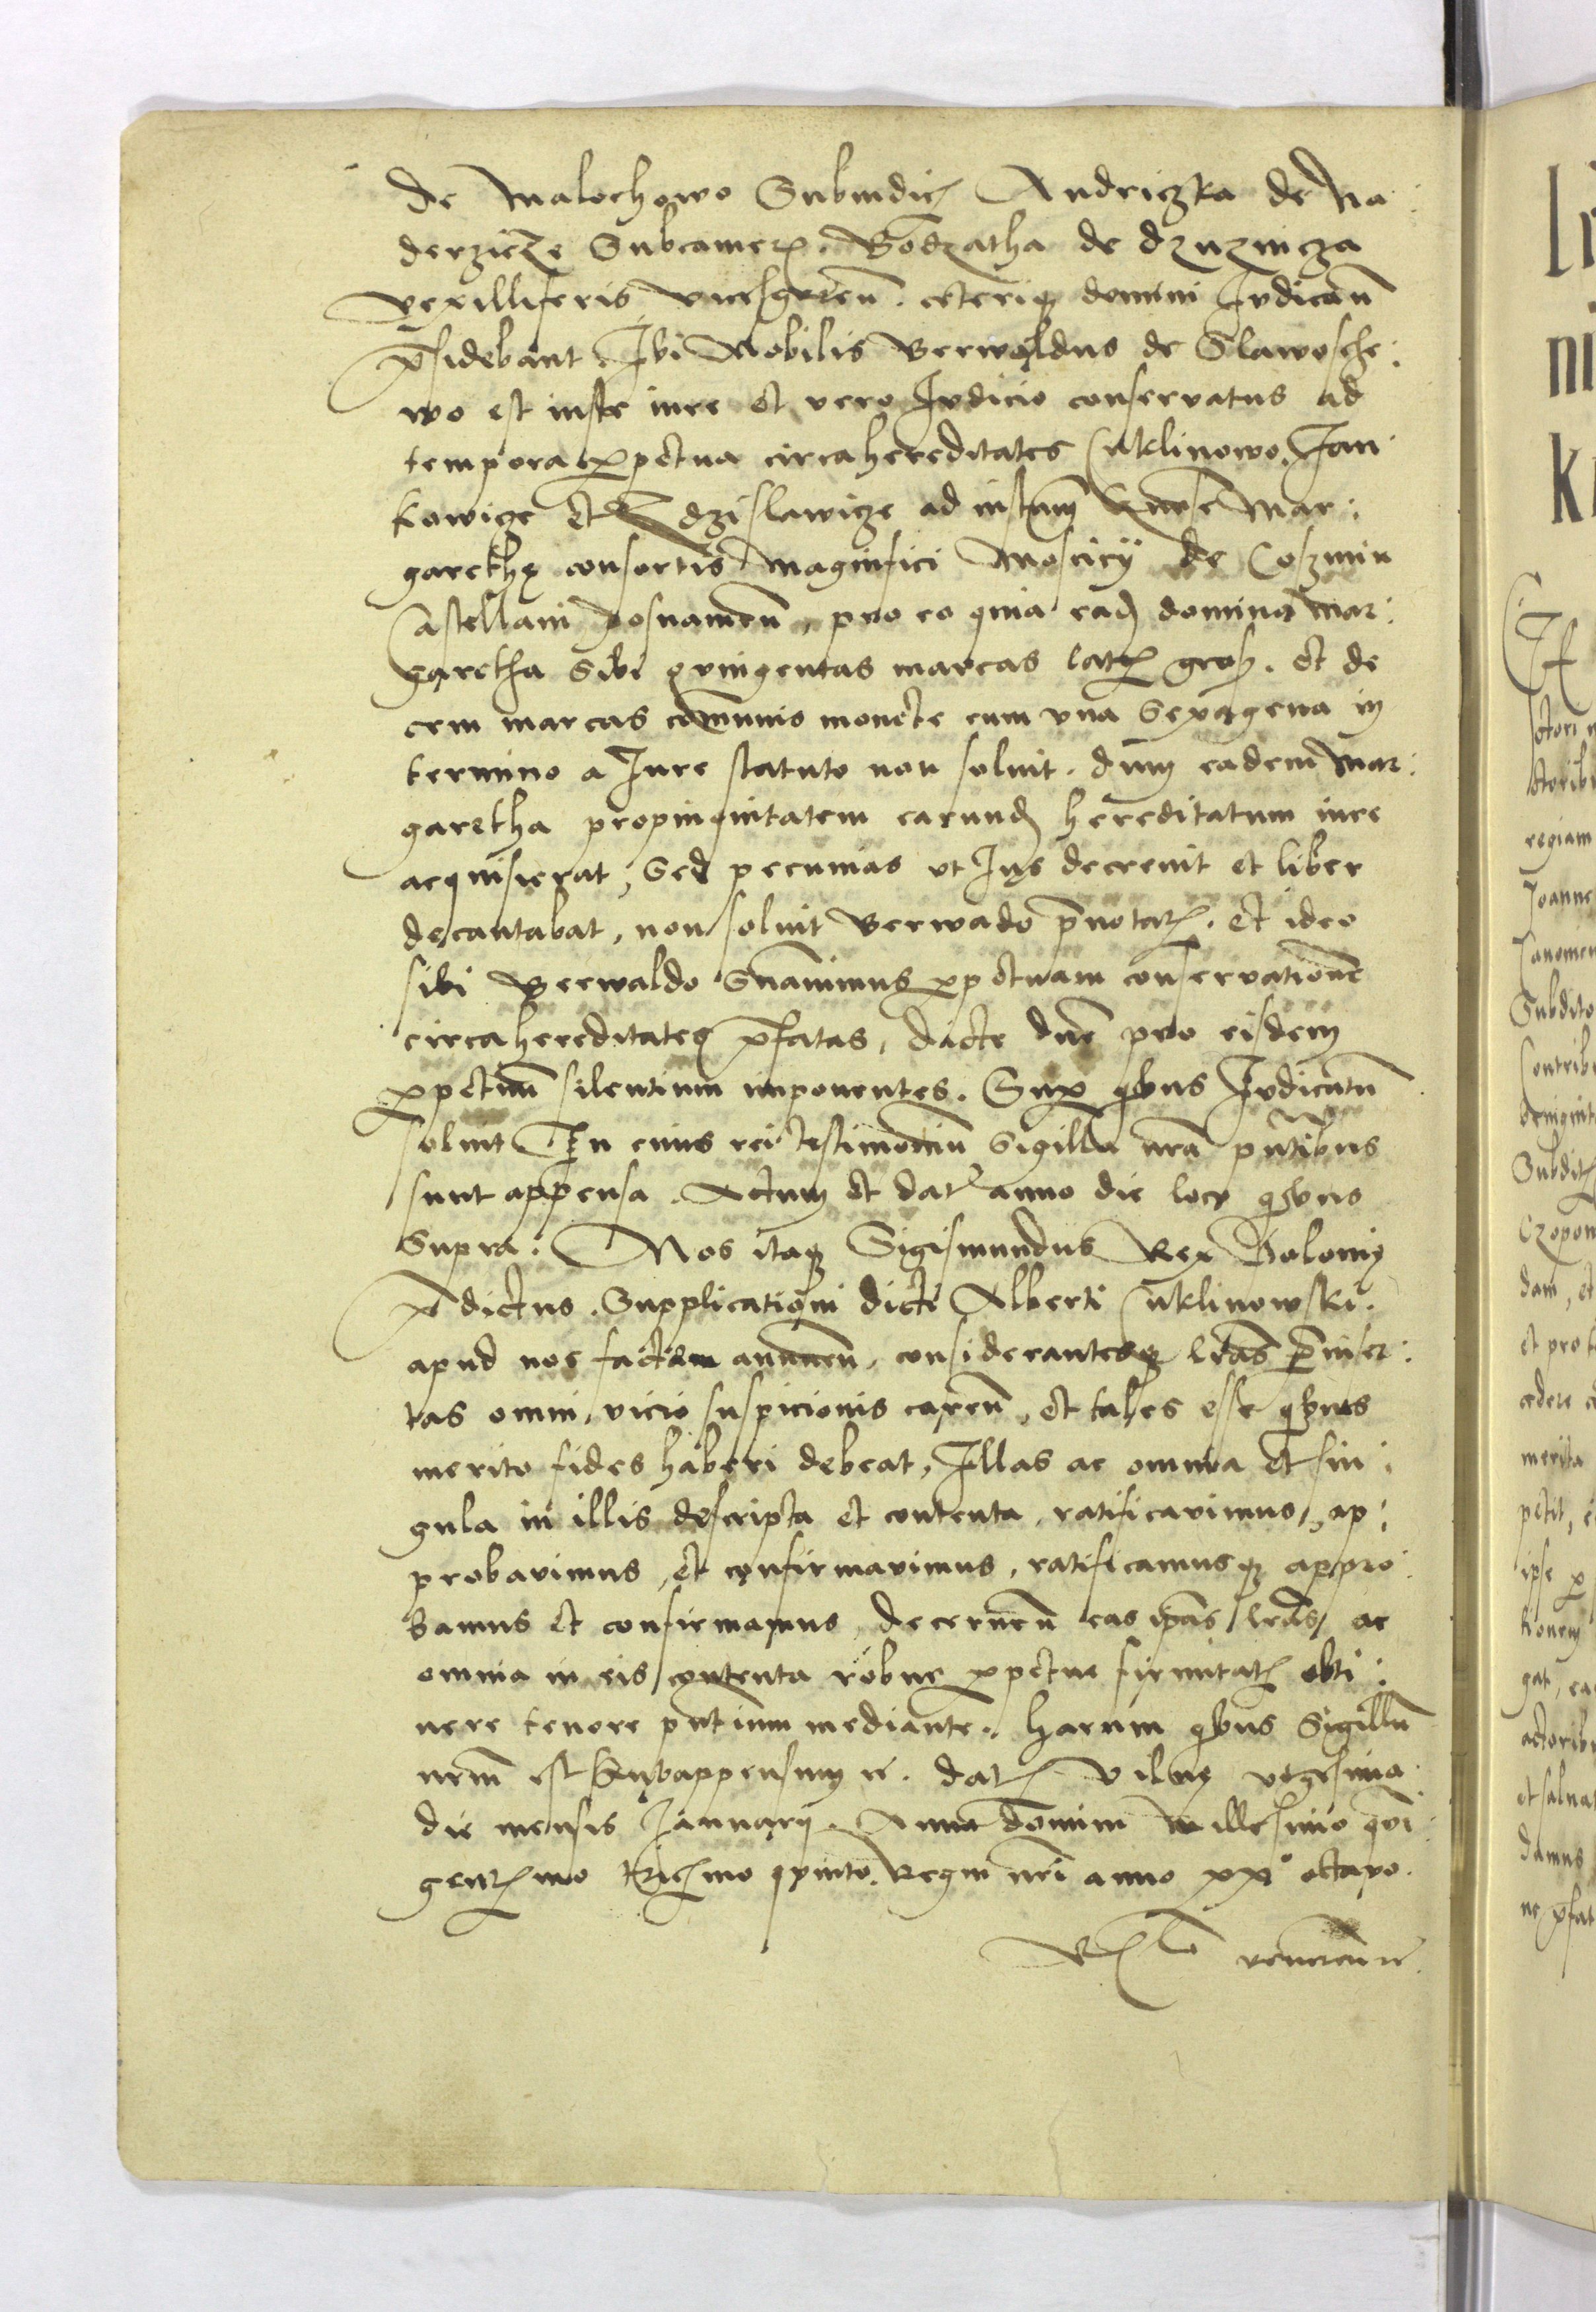 de Malochowo Subiudicꝭ Andriczka de Na
derzicze Subcamerꝭ. Bodzatha de dzuzincza
vexilliferis vicesgereñ. ceteriqꝫ domini Iudicañ
p̃sidebant. Ibi Nobilis Berwaldus de Slawosche:
wo est iuste iure et vero Iudicio conservatus ad
tempora ꝑpetua circa hereditates Cuklinowo, Jan
kowicze et dzislawicze ad instañ Mar:
garethę consortis Magnifici Moscicÿ de Coszmin
Castellani posnanieñ, pro eo quia eadꝫ domina Mar:
garetha Sibi quingentas marcas latꝭ groß. et de
cem marcas com̃unis monete cum vna Sexagena in
termino a Iure statuto non soluit. dum eadem Mar:
garetha propinquitatem earundꝫ hereditatum iure
acquisierat, Sed pecunias ut Ius decreuit et liber
decantabat, non soluit Berwado p̃notatꝭ. et ideo
sibi Berwaldo ꝑpetuam conservationẽ
circa hereditates p̃fatas, dicte dñe pro eisdem
ꝑpetuũ silentium imponentes. Suꝑ qbus Iudicatũ
soluit In cuius rei testimoniũ Sigilla nr̃a pñtibus
sunt appensa. Actum et datꝭ anno die loco qbus
Supra. Nos itaqꝫ Sigismundus Rex Polonię
p̃dictus. Supplicationi dicti Alberti Cuklinowski.
apud nos factae annueñ, considerantesqꝫ lr̃as p̃inser:
tas omni, vicio suspicionis careñ, et tales esse qbus
merito fides haberi debeat, Illas ac omnia et sin:
gula in illis descripta et contenta, ratificavimus, ap:
probavimus, et confirmavimus, ratificamusqꝫ appro
bamus et confirmamus, decerneñ eas ip̃as lr̃as, ac
omnia in eis contenta robur ꝑpetue firmitatꝭ obti:
nere tenore pñtium mediante. Harum qbus Sigillũ
nrm̃ est subappensum ꝛc. datꝭ Vilnę vigesima
die mensis Januarij. Anno domini Millesimo qui
gentꝭmo tricꝭmo quinto. Regni nr̃i anno xxᵒ octavo.